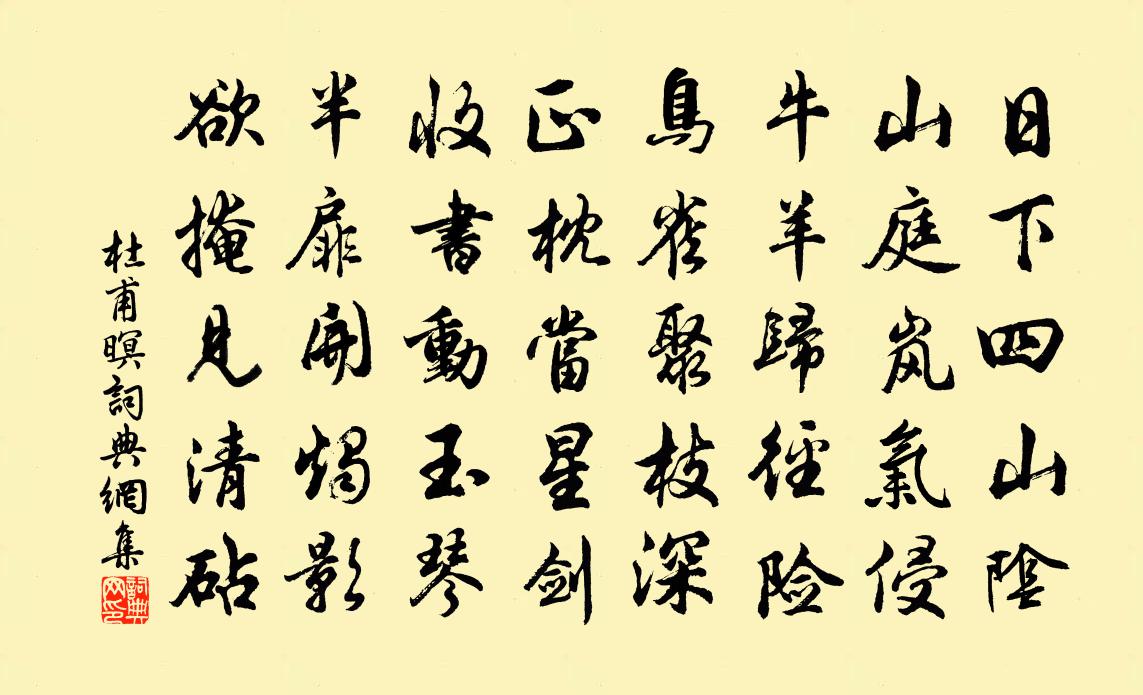 日下四山陰
山庭岚氣侵
牛羊歸徑險
鳥雀聚枝深
正枕當星劍
收書動玉琴
半扉開燭影
欲掩見清砧
杜甫暝詞典網集
詞典网印